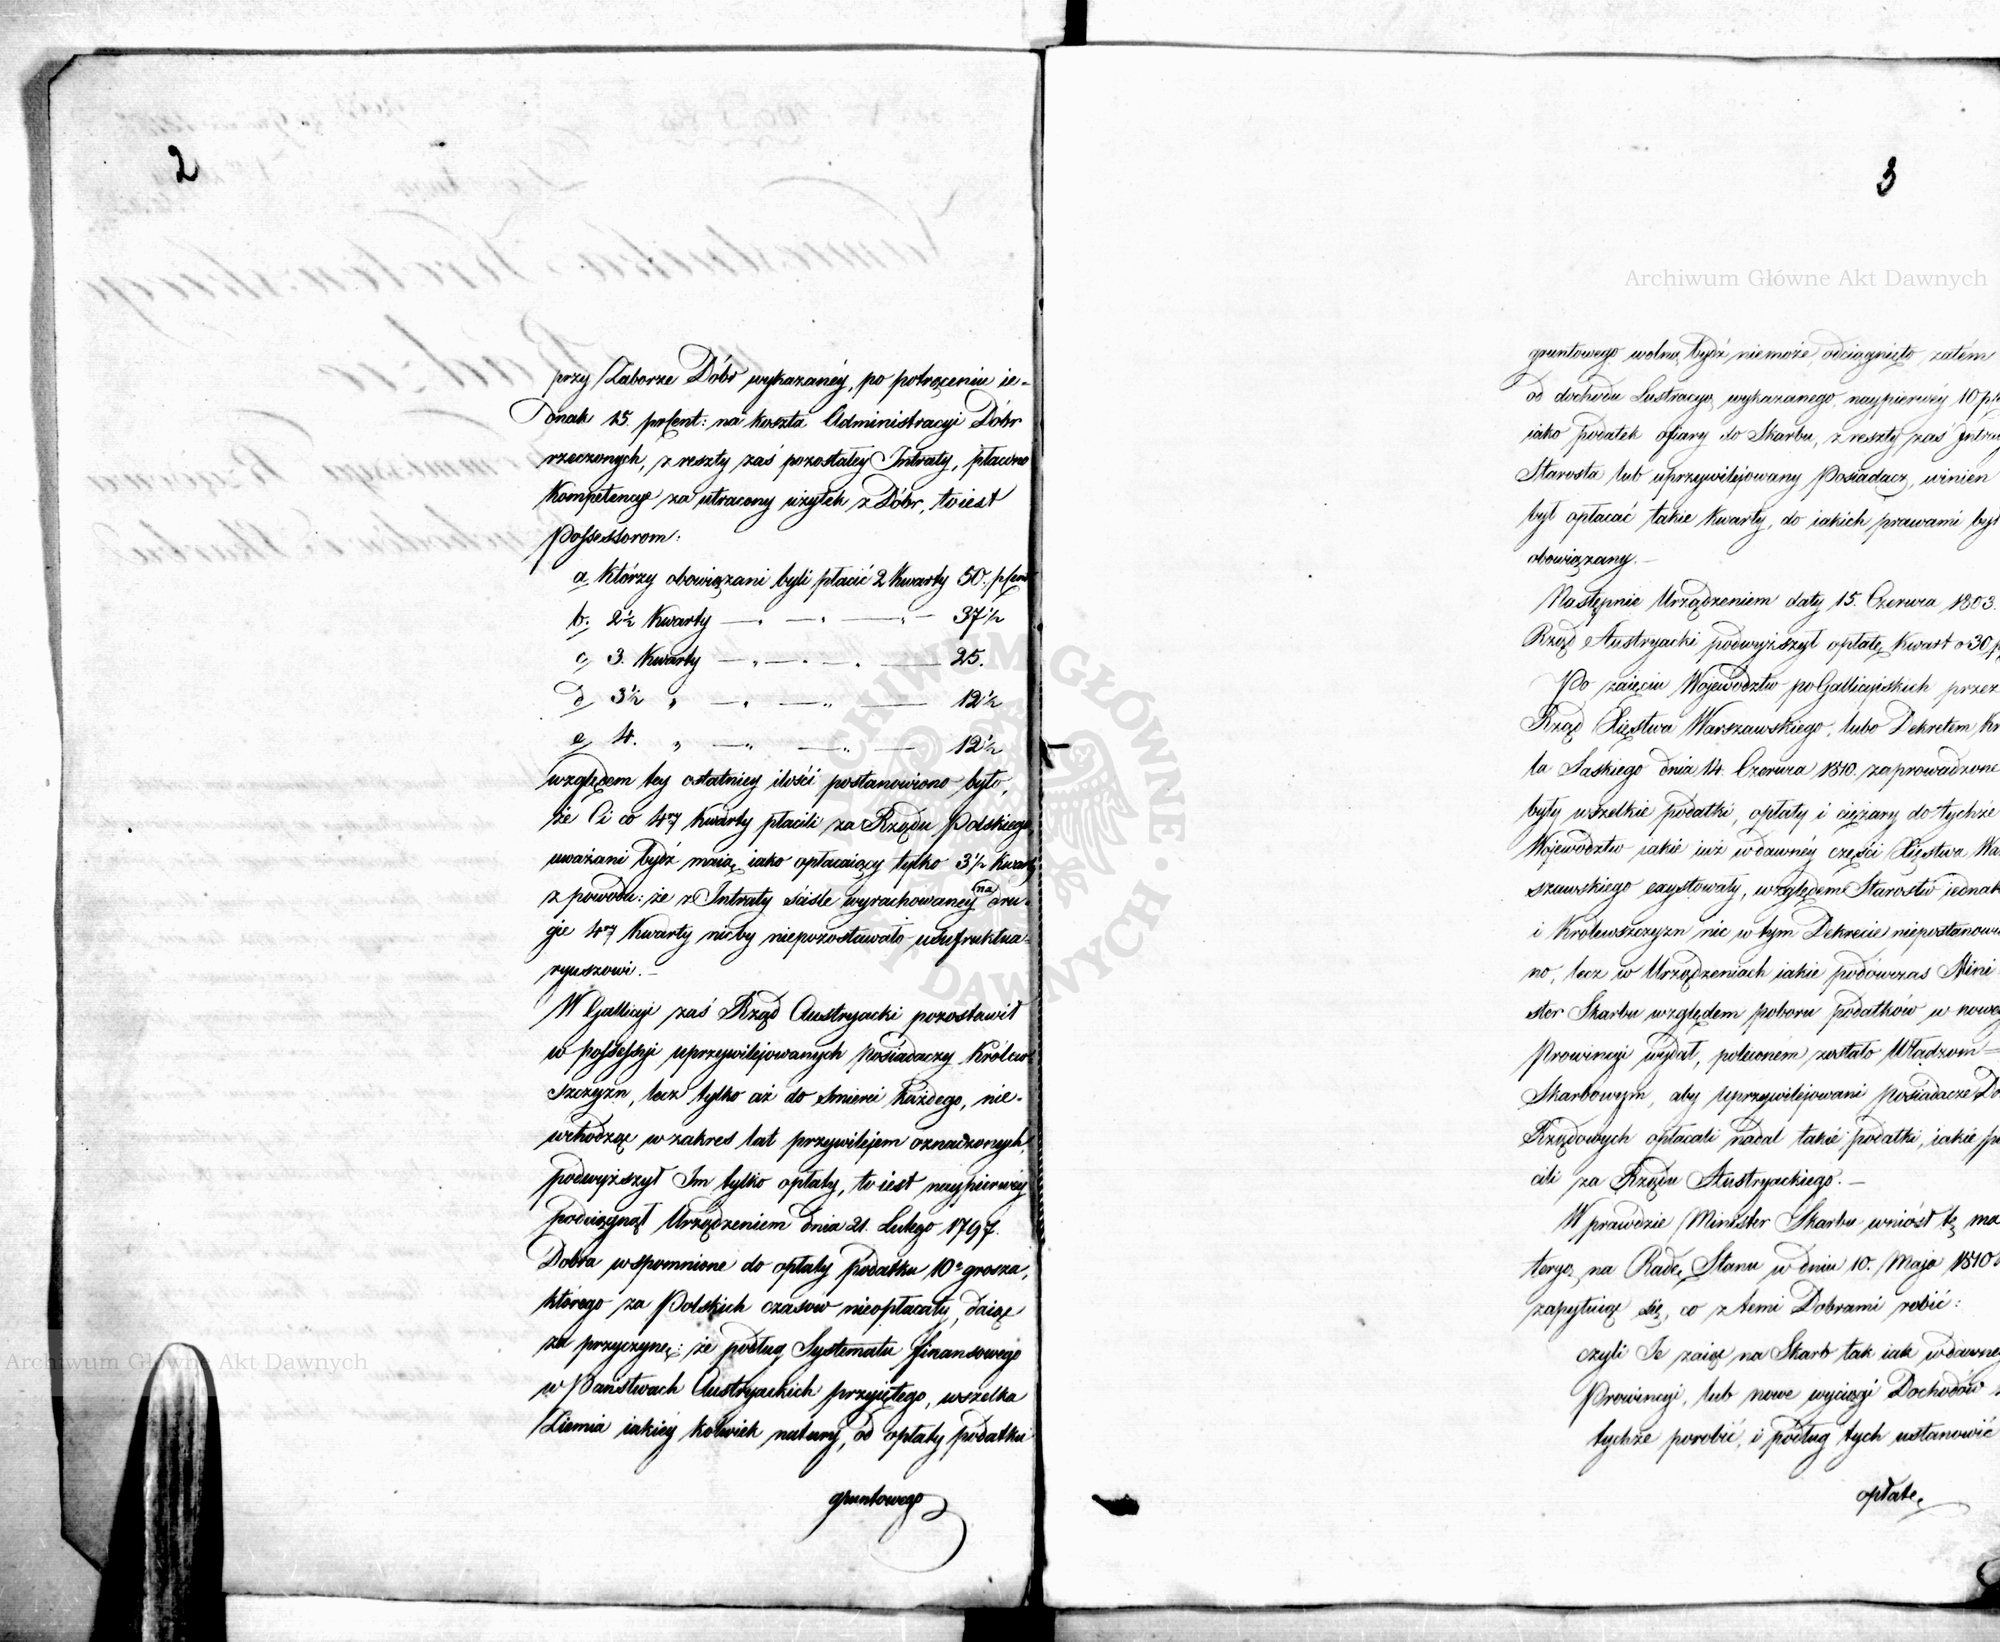 2
przy Zaborze Dóbr wykazanéy, po potrąceniu ie-
dnak 15. prCent: na koszta Administracyi Dóbr
rzeczonych, z reszty zaś pozostałey Intraty, płacono
Kompetencye za utracony użytek z Dóbr, to iest
Possessorom:
a, którzy obowiązani byli płacić 2 Kwarty 50. prCent
b, 2½ Kwarty — „ — „ — „ — 37½
c, 3. Kwarty — „ — „ — 25.
d, 3½ „ — „ — „ — 12½
e, 4. „ — „ — „ — 12½
względem tey ostatniey ilości postanowiono było,
że Ci co 4ry Kwarty płacili za Rządu Polskiego
uważani bydź maią, iako opłacaiący tylko 3½ Kwarty
z powodu: że z Intraty ściśle wyrachowaney na dru-
gie 4ry Kwarty nicby niepozostawało usufruktua-
ryuszowi. —
W Gallicyi zaś Rząd Austryacki pozostawił
w possessyi uprzywilejowanych posiadaczy Królew-
szczyzn, lecz tylko aż do śmierci każdego, nie-
wchodząc w zakres lat przywilejem oznaczonych,
podwyższył Im tylko opłaty, to iest naypierwey
podciągnął Urządzeniem dnia 21. Lutego 1797.
Dobra wspomnione do opłaty podatku 10º grosza,
którego za Polskich czasów nieopłacały, daiąc
za przyczynę: że podług Systematu finansowego
w Państwach Austryackich przyiętego, wszelka
Ziemia iakiéy kolwiek natury, od opłaty podatku
gruntowego
3
Archiwum Główne Akt Dawnych
gruntowego wolną bydź niemoże, odciągnięto zatém
od dochodu Lustracyą wykazanego naypierwéy 10 prC
iako podatek ofiary do Skarbu, z reszty zaś Intraty
Starosta lub uprzywilejowany Posiadacz, winien
był opłacać takie Kwarty, do iakich prawami był
obowiązany. —
Następnie Urządzeniem daty 15. Czerwca 1803.
Rząd Austryacki podwyższył opłatę Kwart o 30 p
Po zaięciu Województw poGallicyiskich przez
Rząd Xięstwa Warszawskiego, lubo Dekretem Kró
la Saskiego dnia 14. Czerwca 1810. zaprowadzone
były wszelkie podatki, opłaty i ciężary do tychże
Województw iakie iuż w dawnéy części Xięstwa War
szawskiego exystowały, względem Starostw iednak
i Królewszczyzn nic w tym Dekrecie niepostanowio
no, lecz w Urządzeniach iakie podówczas Mini
ster Skarbu względem poboru podatków w nowey
Prowincyi wydał, poleconém zostało Władzom —
Skarbowym, aby uprzywilejowani posiadacze Dó
Rządowych opłacali nadal takie podatki, iakie pła
cili za Rządu Austryackiego. —
W prawdzie Minister Skarbu wniósł tę ma
teryą na Radę Stanu w dniu 10. Maja 1810
zapytuiąc się, co z temi Dobrami robić:
czyli Je zaiąć na Skarb tak iak w dawney
Prowincyi, lub nowe wyciągi Dochodów z
tychże porobić, i podług tych ustanowić
opłatę
Archiwum Główne Akt Dawnych
ARCHIWUM GŁÓWNE AKT DAWNYCH